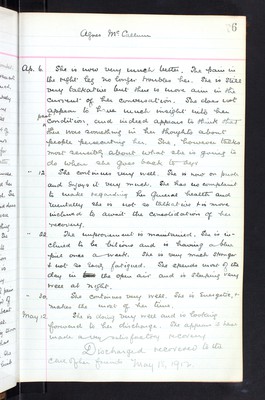 Agnes McCallum
76
Ap. 6. She is now very much better. The pain in
the right leg no longer troubles her. She is still
very talkative but there is more aim in the
current of her conversation. She does not
appear to have much insight into her
past
condition, and indeed appears to think that
there was something in her thoughts about
people persecuting her. She, however, talks
most sensibly about what she is going to
do when she goes back to
" 13. She continues very well. She is now on parole
and enjoys it very much. She has no complaint
to make regarding her general health and
mentally she is not so talkative & is more
inclined to await the consolidation of her
recovery.
" 22. The improvement is maintained. She is in-
clined to be bilious and is having a blue
pill once a week. She is very much stronger
& not so easily fatigued. She spends most of the
day in the open air and is sleeping very
well at night.
" 30. She continues very well. She is energetic, &
makes the most of her time.
May 12. She is doing very well and is looking
forward to her discharge. She appears to have
made a very satisfactory recovery.
Discharged recovered to the
care of her friends May 1912.